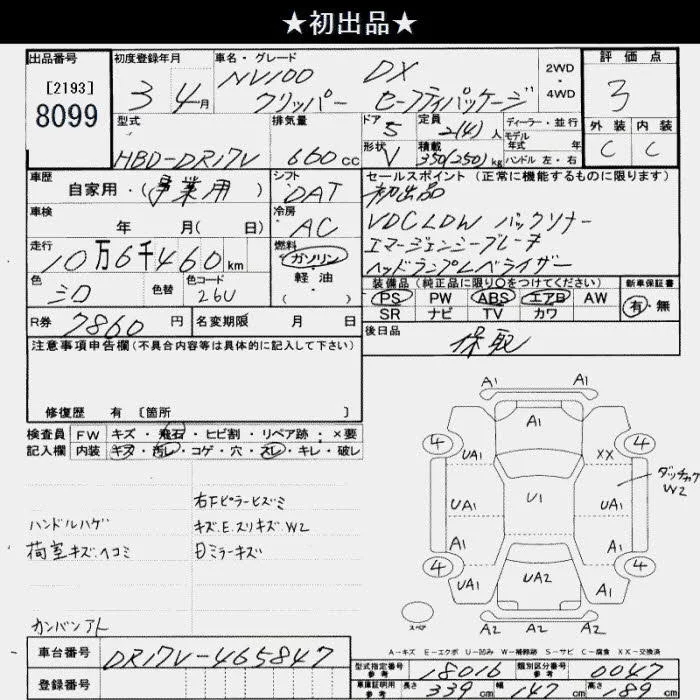 ★初出品★
出品番号
[2193]
8099
初度登録年月
3年4月
車名・グレード
NV100 DX
クリッパー セーフティパッケージ
2WD
・
4WD
評価点
3
外装 内装
C C
型式
HBD-DR17V
排気量
660cc
ドア
5
形状
V
定員
2(4)人
積載
350(250)kg
ディーラー・並行
モデル
年式 年
ハンドル 左・右
車歴
自家用・(事業用)
シフト
DAT
車検
年 月( 日)
冷房
AC
走行
10万6千460km
燃料
ガソリン
軽・油
( )
色
シロ
色替
色コード
26U
R券
7860円
名変期限 月 日
セールスポイント(正常に機能するものに限ります)
初出品
VDC LDW バックソナー
エマージェンシーブレーキ
ヘッドランプレベライザー
装備品(純正品に限り○をつけてください)
PS PW ABS エアB AW
SR ナビ TV カワ
新車保証書
有・無
後日品
保取
注意事項申告欄(不具合内容等は具体的に記入して下さい)
修復歴 有 [箇所 ]
検査員 FW キズ・飛石・ヒビ割・リペア跡・×要
記入欄 内装 キズ・汚レ・コゲ・穴・スレ・キレ・破レ
右Fピラーヒズミ
ハンドルハゲ キズ.E.スリキズW2
荷室キズ.ヘコミ 日ミラーキズ
カンバンアト
A1
A1
A1
A1
4
4
UA1
XX
UA1
U1
UA1
W2
A1
A1
4
4
UA1
UA2
A1
A2
A2
A2
スペア
A-キズ E-エクボ U-凹み W-補修跡 S-サビ C-腐食 XX-交換済
車台番号
DR17V-465847
登録番号
型式指定番号
参考
18016
類別区分番号
参考
0047
車庫証明用
参考
長さ 339cm 幅 147cm 高さ 189cm